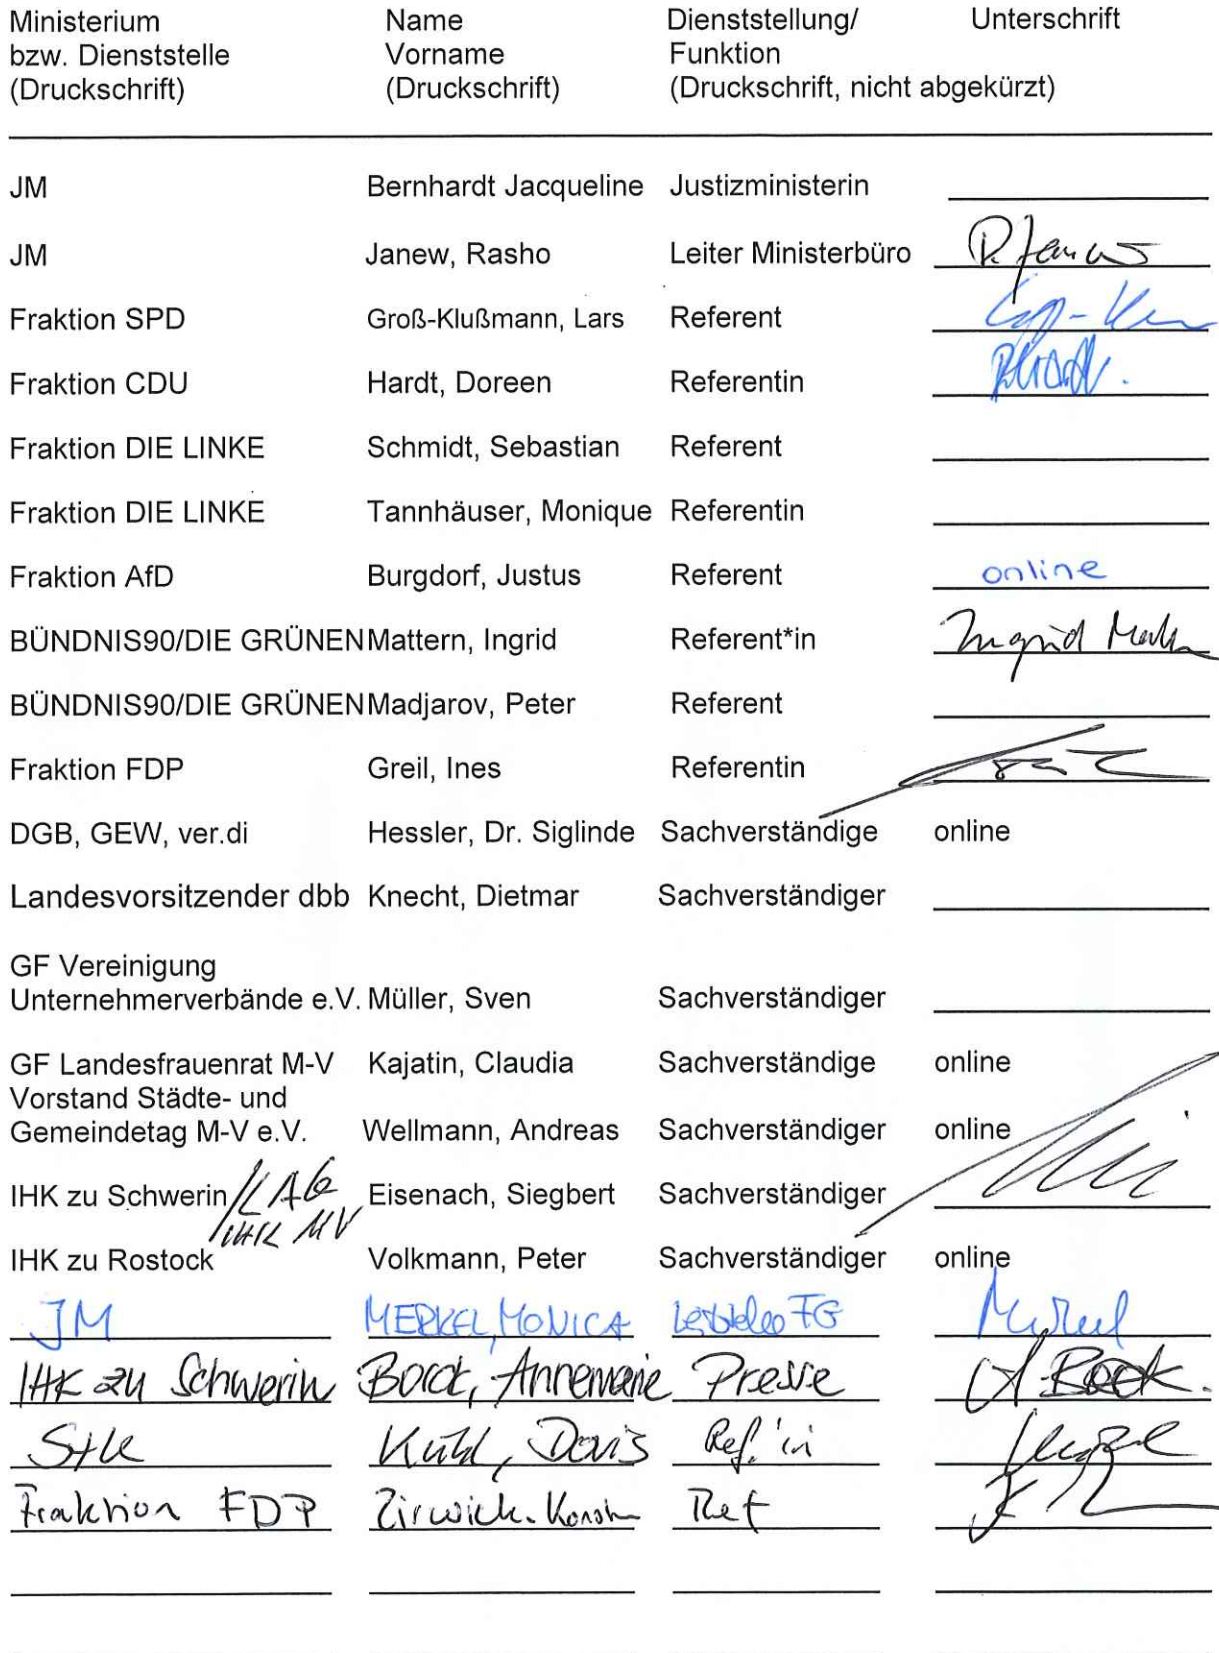 Ministerium Name Dienststellung/ Unterschrift
bzw. Dienststelle Vorname Funktion
(Druckschrift) (Druckschrift) (Druckschrift, nicht abgekürzt)
JM Bernhardt Jacqueline Justizministerin
JM Janew, Rasho Leiter Ministerbüro
Fraktion SPD Groß-Klußmann, Lars Referent
Fraktion CDU Hardt, Doreen Referentin
Fraktion DIE LINKE Schmidt, Sebastian Referent
Fraktion DIE LINKE Tannhäuser, Monique Referentin
Fraktion AfD Burgdorf, Justus Referent online
BÜNDNIS90/DIE GRÜNEN Mattern, Ingrid Referent*in Ingrid
BÜNDNIS90/DIE GRÜNEN Madjarov, Peter Referent
Fraktion FDP Greil, Ines Referentin
DGB, GEW, ver.di Hessler, Dr. Siglinde Sachverständige online
Landesvorsitzender dbb Knecht, Dietmar Sachverständiger
GF Vereinigung
Unternehmerverbände e.V. Müller, Sven Sachverständiger
GF Landesfrauenrat M-V Kajatin, Claudia Sachverständige online
Vorstand Städte- und
Gemeindetag M-V e.V. Wellmann, Andreas Sachverständiger online
IHK zu Schwerin / LAG Eisenach, Siegbert Sachverständiger
IHK MV
IHK zu Rostock Volkmann, Peter Sachverständiger online
JM MERKEL, MONICA FG
IHK zu Schwerin Annemarie Presse
StK Doris Ref.'in
Fraktion FDP Ref